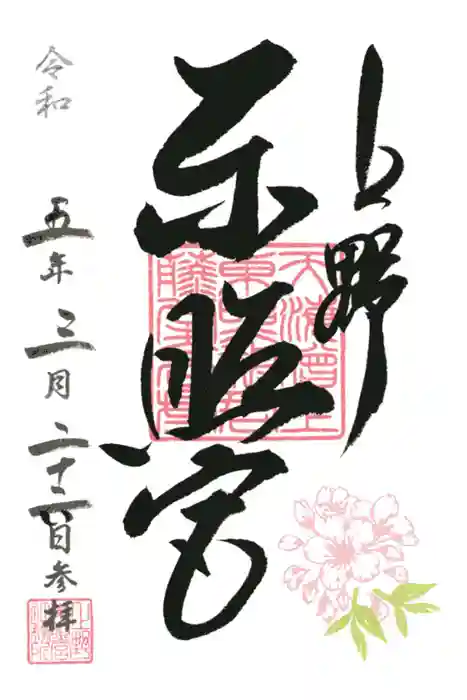 上野
東照宮
令和五年三月二十六日参拝